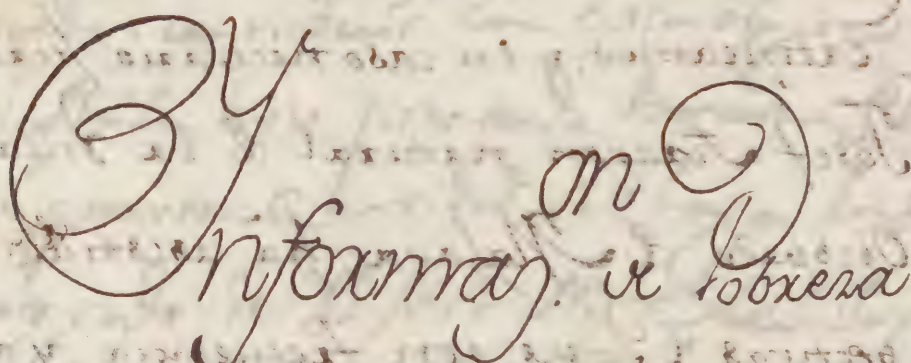 Ynformaz.on de Pobreza